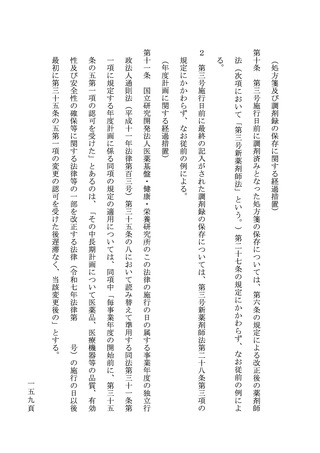 （処方箋及び調剤録の保存に関する経過措置）
第十条　第三号施行日前に調剤済みとなった処方箋の保存については、第六条の規定による改正後の薬剤師
法（次項において「第三号新薬剤師法」という。）第二十七条の規定にかかわらず、なお従前の例によ
る。
２　第三号施行日前に最終の記入がされた調剤録の保存については、第三号新薬剤師法第二十八条第三項の
規定にかかわらず、なお従前の例による。
（年度計画に関する経過措置）
第十一条　国立研究開発法人医薬基盤・健康・栄養研究所のこの法律の施行の日の属する事業年度の独立行
政法人通則法（平成十一年法律第百三号）第三十五条の八において読み替えて準用する同法第三十一条第
一項に規定する年度計画に係る同項の規定の適用については、同項中「毎事業年度の開始前に、第三十五
条の五第一項の認可を受けた」とあるのは、「その中長期計画について医薬品、医療機器等の品質、有効
性及び安全性の確保等に関する法律等の一部を改正する法律（令和七年法律第　　　号）の施行の日以後
最初に第三十五条の五第一項の変更の認可を受けた後遅滞なく、当該変更後の」とする。
一五九頁